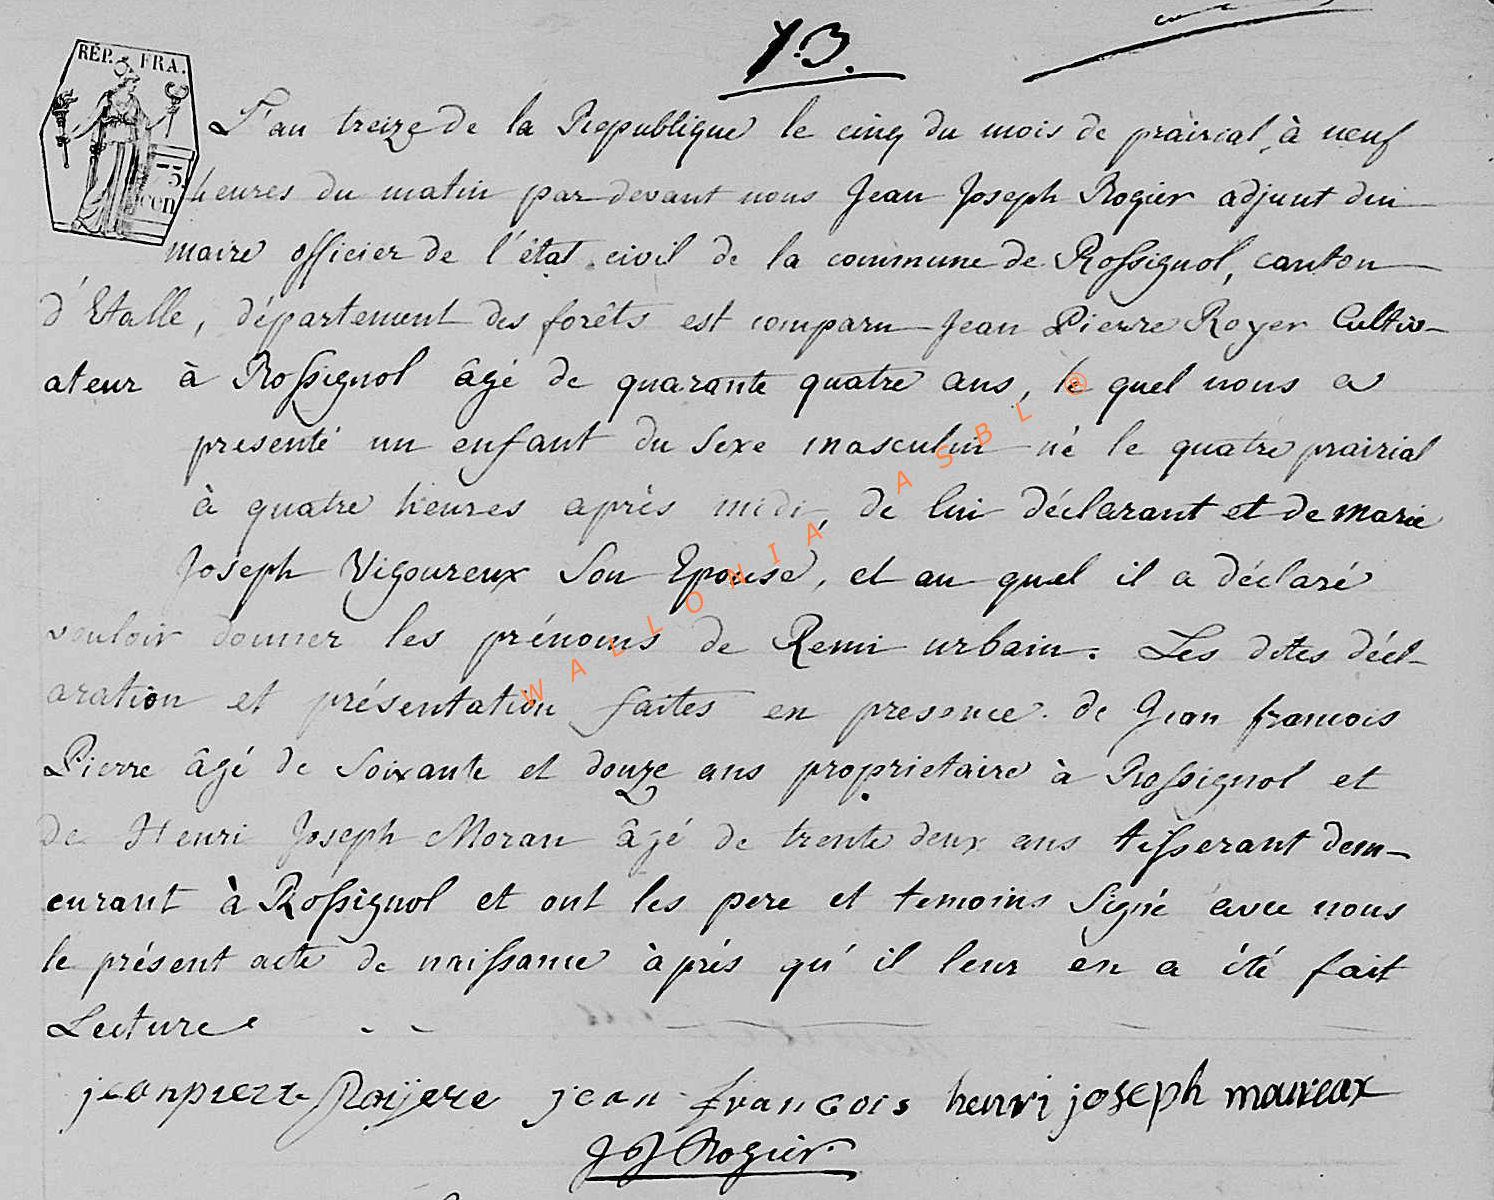 13.
RÉP. FRA.
75
cen
L'an treize de la Republique le cinq du mois de prairial, à neuf
heures du matin par devant nous Jean Joseph Rogier adjunt du
maire officier de l'état civil de la commune de Rossignol, canton
d'Etalle, département des forêts est comparu Jean Pierre Royer Cultiv-
ateur à Rossignol âgé de quarante quatre ans, le quel nous a
presenté un enfant du sexe masculin né le quatre prairial
à quatre heures après midi, de lui déclarant et de marie
Joseph Vigoureux son Epouse, et au quel il a déclaré
vouloir donner les prénoms de Remi urbain. Les dites décl-
aration et présentation faites en presence de Jean francois
Pierre âgé de soixante et douze ans proprietaire à Rossignol et
de Henri Joseph Moran âgé de trente deux ans tisserant dem-
eurant à Rossignol et ont les pere et temoins signé avec nous
le présent acte de naissance àprés qu'il leur en a été fait
Lecture
jeanpierre Roÿere jean francois henri joseph maureax
J J Rogier
WALLONIA ASBL ®